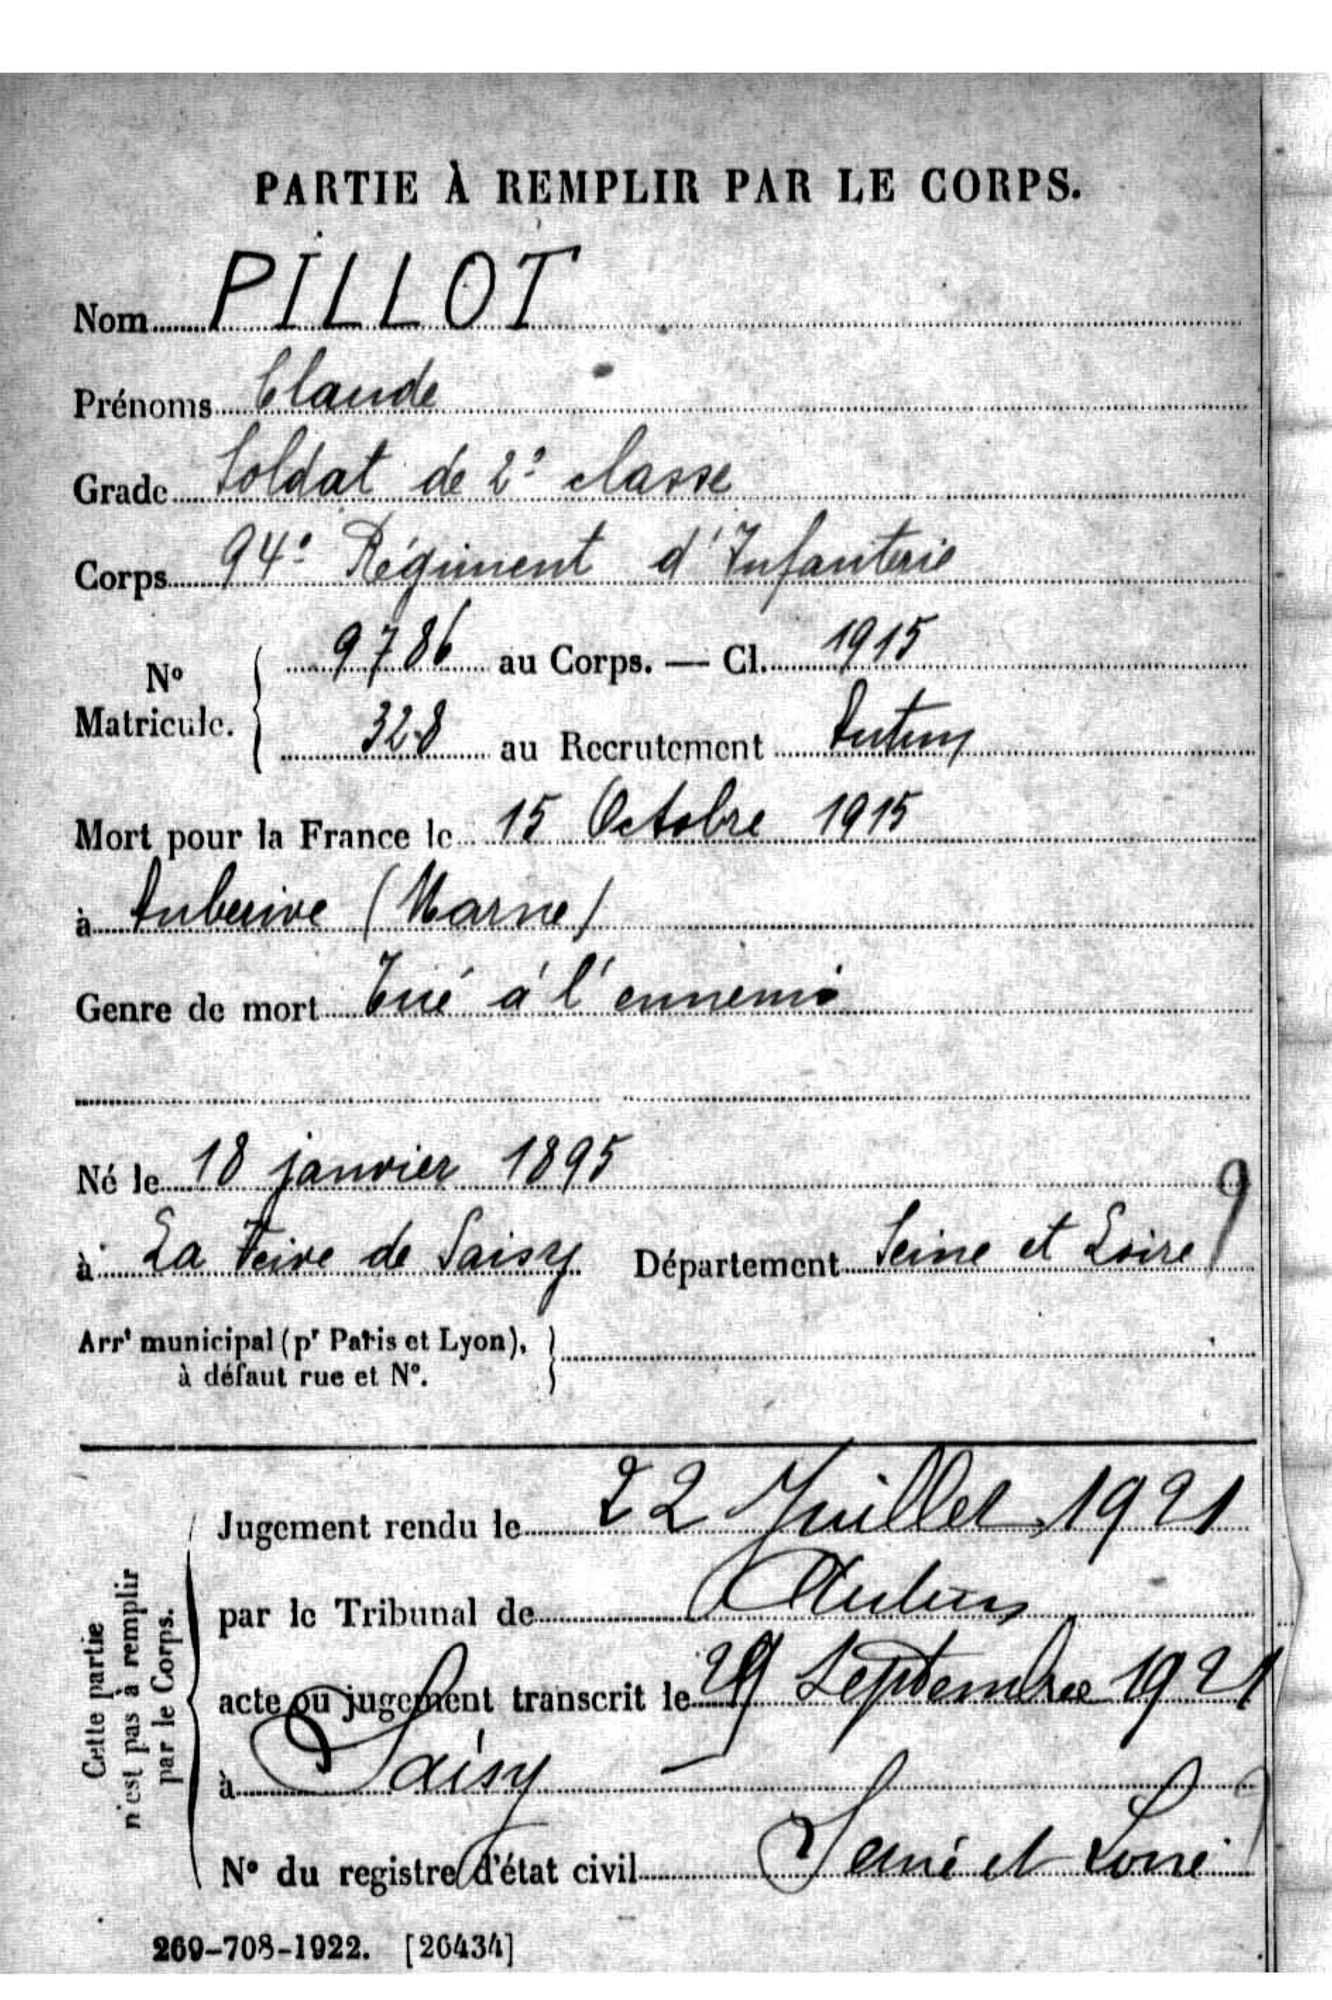 PARTIE À REMPLIR PAR LE CORPS.
Nom PILLOT
Prénoms Claude
Grade Soldat de 2e classe
Corps 94e Régiment d'Infanterie
No Matricule. 9786 au Corps. — Cl. 1915
328 au Recrutement Autun
Mort pour la France le 15 Octobre 1915
à Auberive (Marne)
Genre de mort Tué à l'ennemi
Né le 18 janvier 1895
à La de Saisy Département Seine et Loire
Arrt municipal (pr Paris et Lyon),
à défaut rue et No.
Cette partie
n'est pas à remplir
par le Corps.
Jugement rendu le 22 Juillet 1921
par le Tribunal de Autun
acte ou jugement transcrit le 29 Septembre 1921
à Saisy —
No du registre d'état civil Seine et Loire
269-708-1922. [26434]